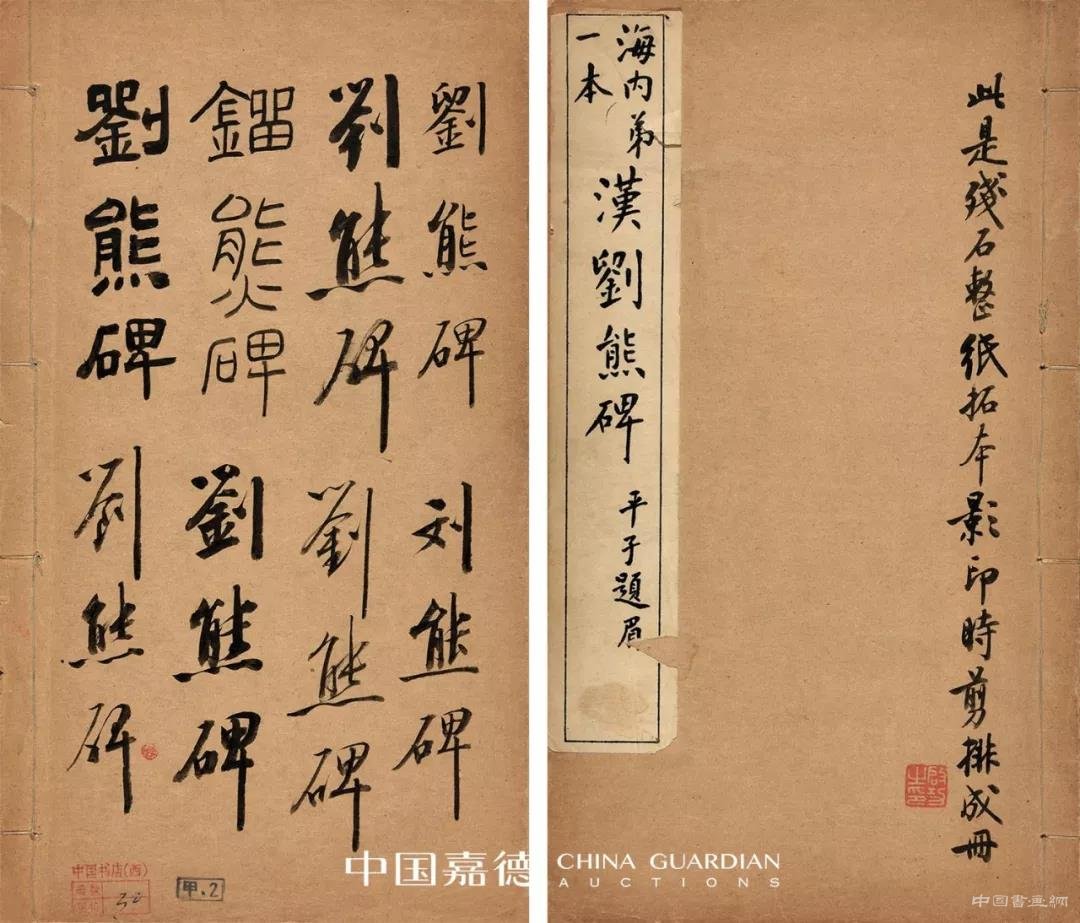 劉熊碑
劉熊碑
鎦熊碑
劉熊碑
刘熊碑
劉熊碑
劉熊碑
劉熊碑
中国书店(西)
甲.2
此是殘石整紙拓本影印時剪排成冊
海内弟
一本
漢劉熊碑
平子題眉
中国嘉德
CHINA GUARDIAN
AUCTIONS
中国書画網